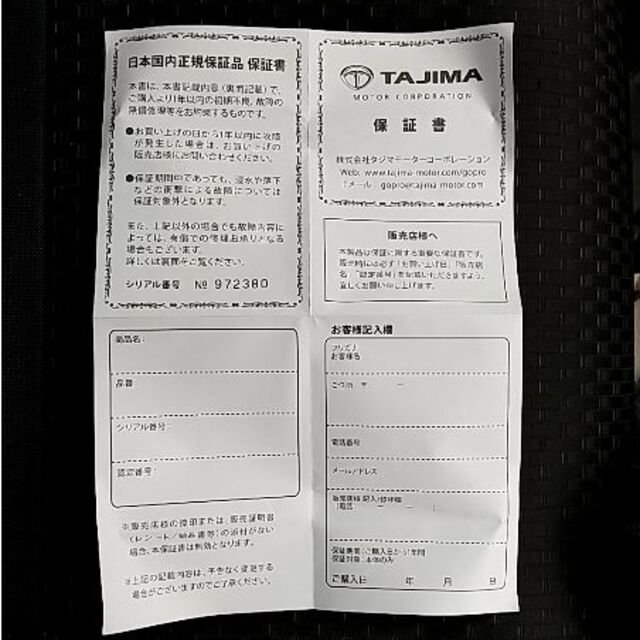 日本国内正規保証品 保証書
本書は、本書記載内容（裏面記載）で、
ご購入より1年以内の初期不良、故障の
無償修理等をお約束するものです。
●お買い上げの日から1年以内に故障
が発生した場合は、お買い上げの
販売店様にお問い合わせください。
●保証期間中であっても、浸水や落下
などの衝撃による故障については
保証対象外となります。
また、上記以外の場合でも故障内容に
よっては、有償での修理お承りとなる
場合もございます。
詳しくは裏面をご覧ください。
シリアル番号 № 972380
TAJIMA
MOTOR CORPORATION
保証書
株式会社タジマモーターコーポレーション
Web: www.tajima-motor.com/gopro
メール: gopro@tajima-motor.com
販売店様へ
本製品は保証に関する重要な保証書です。
販売時には必ず「お買い上げ日」「販売店
名」「認定番号」を記載いただきますよう、
宜しくお願い申し上げます。
商品名：
品番：
シリアル番号：
認定番号：
※販売店様の捺印または、販売証明書
（レシート/納品書等）の添付がない
場合、本保証書は無効となります。
※上記の記載内容は、予告なく変更する
場合がございますのでご了承ください。
お客様記入欄
フリガナ
お客様名
ご住所 〒 －
電話番号
メールアドレス
販売店様 記入/捺印欄
電話 － －
保証期間：ご購入日から1年間
保証対象：本体のみ
ご購入日 年 月 日